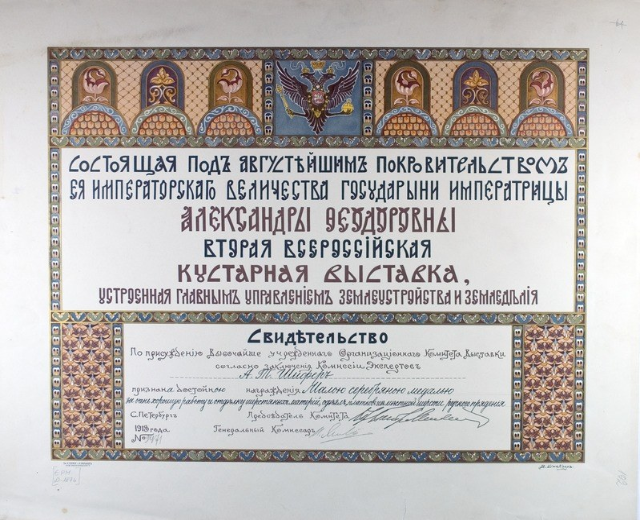 СОСТОЯЩАЯ ПОДЪ АВГУСТѢЙШИМЪ ПОКРОВИТЕЛЬСТВОМЪ
ЕЯ ИМПЕРАТОРСКАГО ВЕЛИЧЕСТВА ГОСУДАРЫНИ ИМПЕРАТРИЦЫ
АЛЕКСАНДРЫ ѲЕОДОРОВНЫ
ВТОРАЯ ВСЕРОССІЙСКАЯ
КУСТАРНАЯ ВЫСТАВКА,
УСТРОЕННАЯ ГЛАВНЫМЪ УПРАВЛЕНІЕМЪ ЗЕМЛЕУСТРОЙСТВА И ЗЕМЛЕДѢЛІЯ
Свидѣтельство
По присужденію Высочайше учрежденнаго Организаціоннаго Комитета Выставки
согласно заключенія Комиссіи Экспертовъ
А. Шиферъ
признана достойною награжденія Малою серебряною медалью
за хорошую работу и отдѣлку шерстяныхъ матерій, ручного пряденія
С.Петербургъ Предсѣдатель Комитета
1913 года. Генеральный Комиссаръ
№